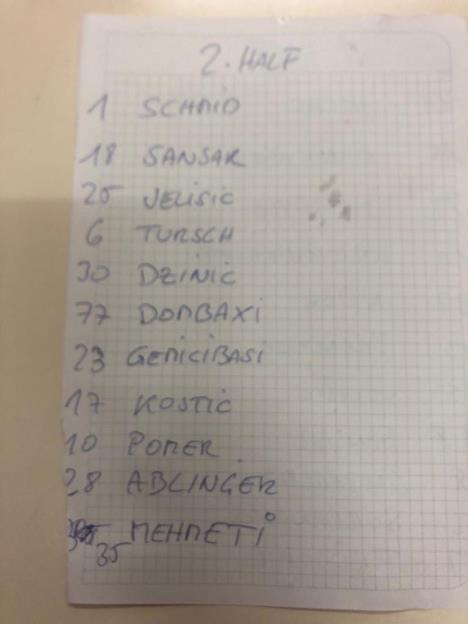 2. HALF
1 SCHMID
18 SANSAR
25 JELISIC
6 TURSCH
30 DZINIC
77 DOMBAXI
23 GEMICIBASI
17 KOSTIC
10 POMER
28 ABLINGER
MEHMETI
35